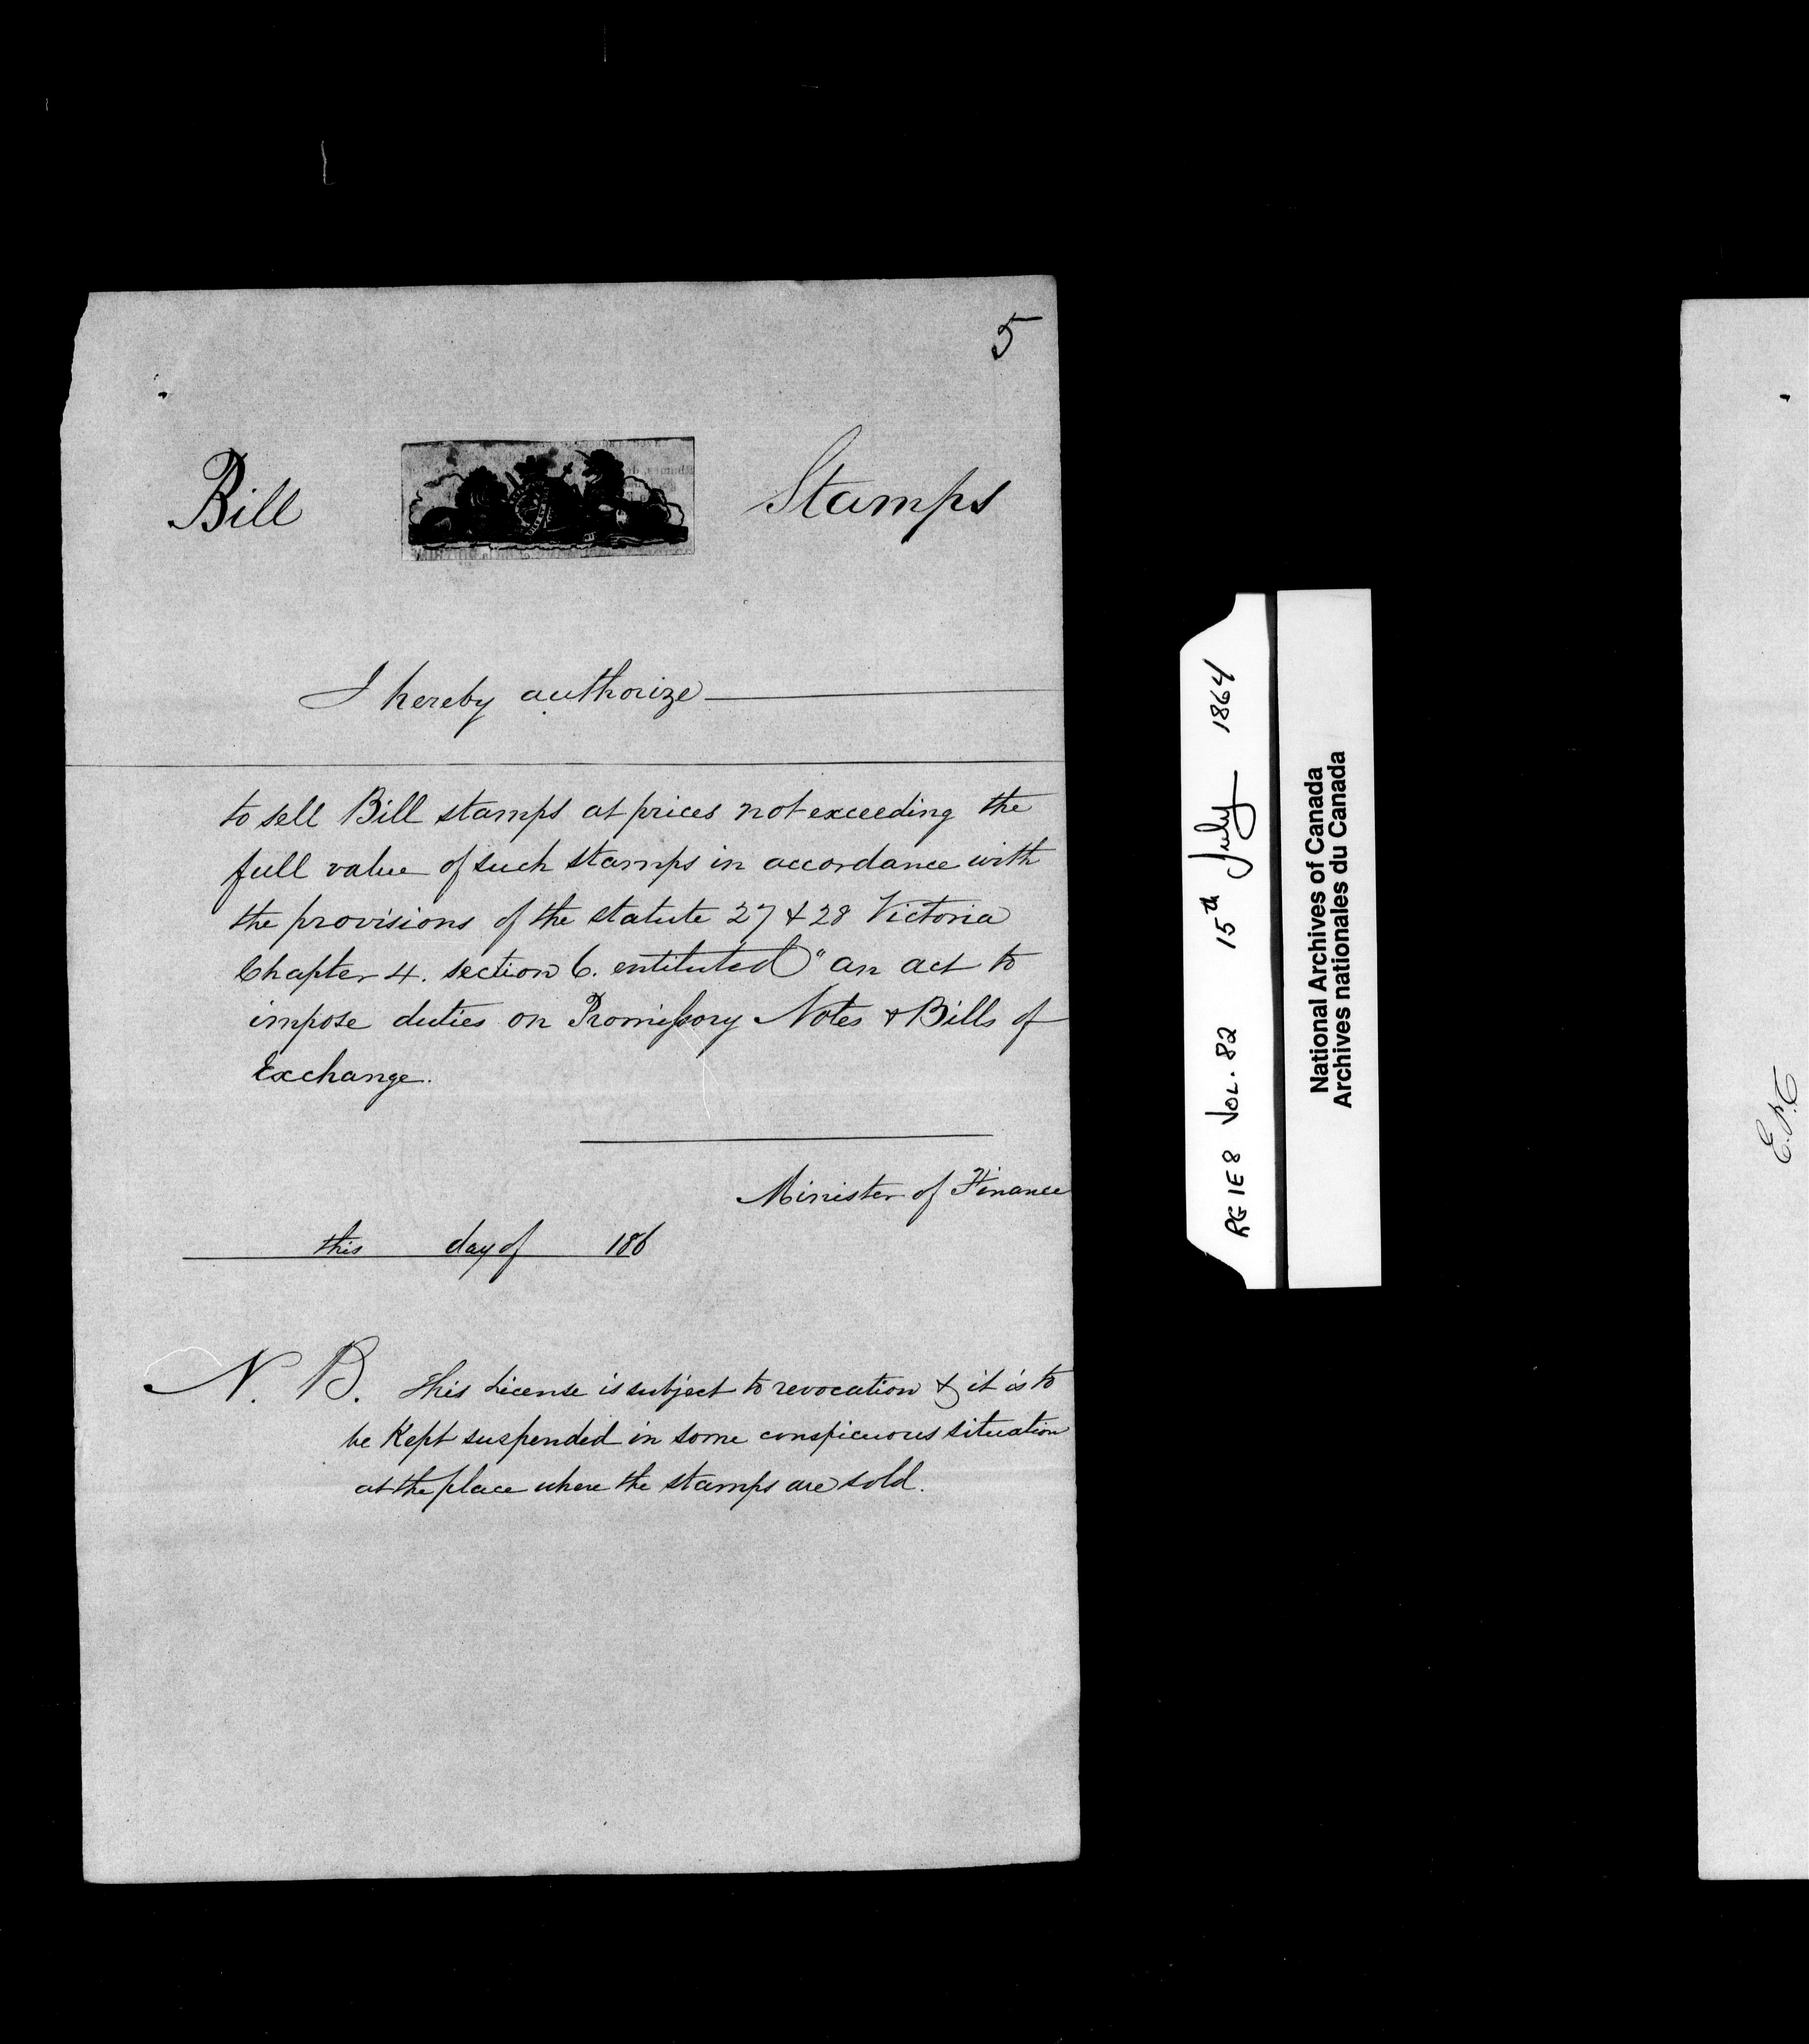 5
Bill Stamps
I hereby authorize
to sell Bill stamps at prices not exceeding the
full value of such stamps in accordance with
the provisions of the statute 27 & 28 Victoria
Chapter 4. section 6. entituted "an act to
impose duties on Promissory Notes & Bills of
Exchange.
Minister of Finance
this day of 186
N. B. This License is subject to revocation & it is to
be Kept suspended in some conspicuous situation
at the place where the stamps are sold.
RG 1E8 VOL. 82 15th July 1864
National Archives of Canada
Archives nationales du Canada